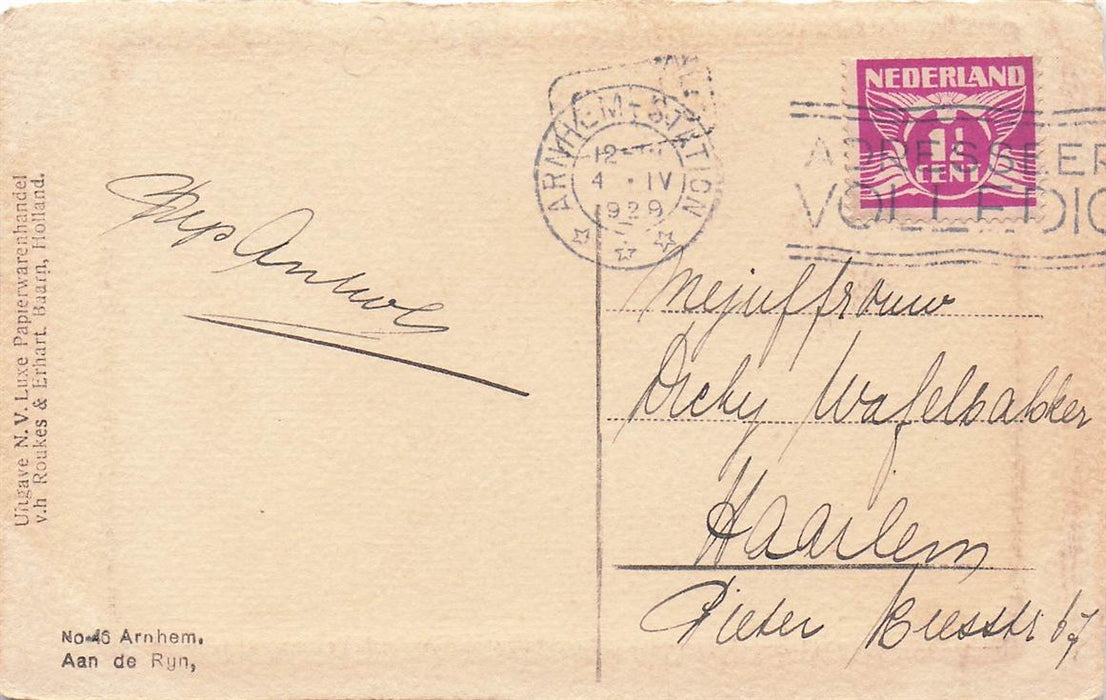 Uitgave N.V. Luxe Papierwarenhandel
v.h Roukes & Erhart. Baarn, Holland.
ARNHEM-STATION
12-
4 · IV
1929
NEDERLAND
1½
CENT
ADRESSEER
VOLLEDIG
Mejuffrouw
Dicky Wafelbakker
Haarlem
Pieter Kiesstr 67
No 46 Arnhem.
Aan de Ryn,